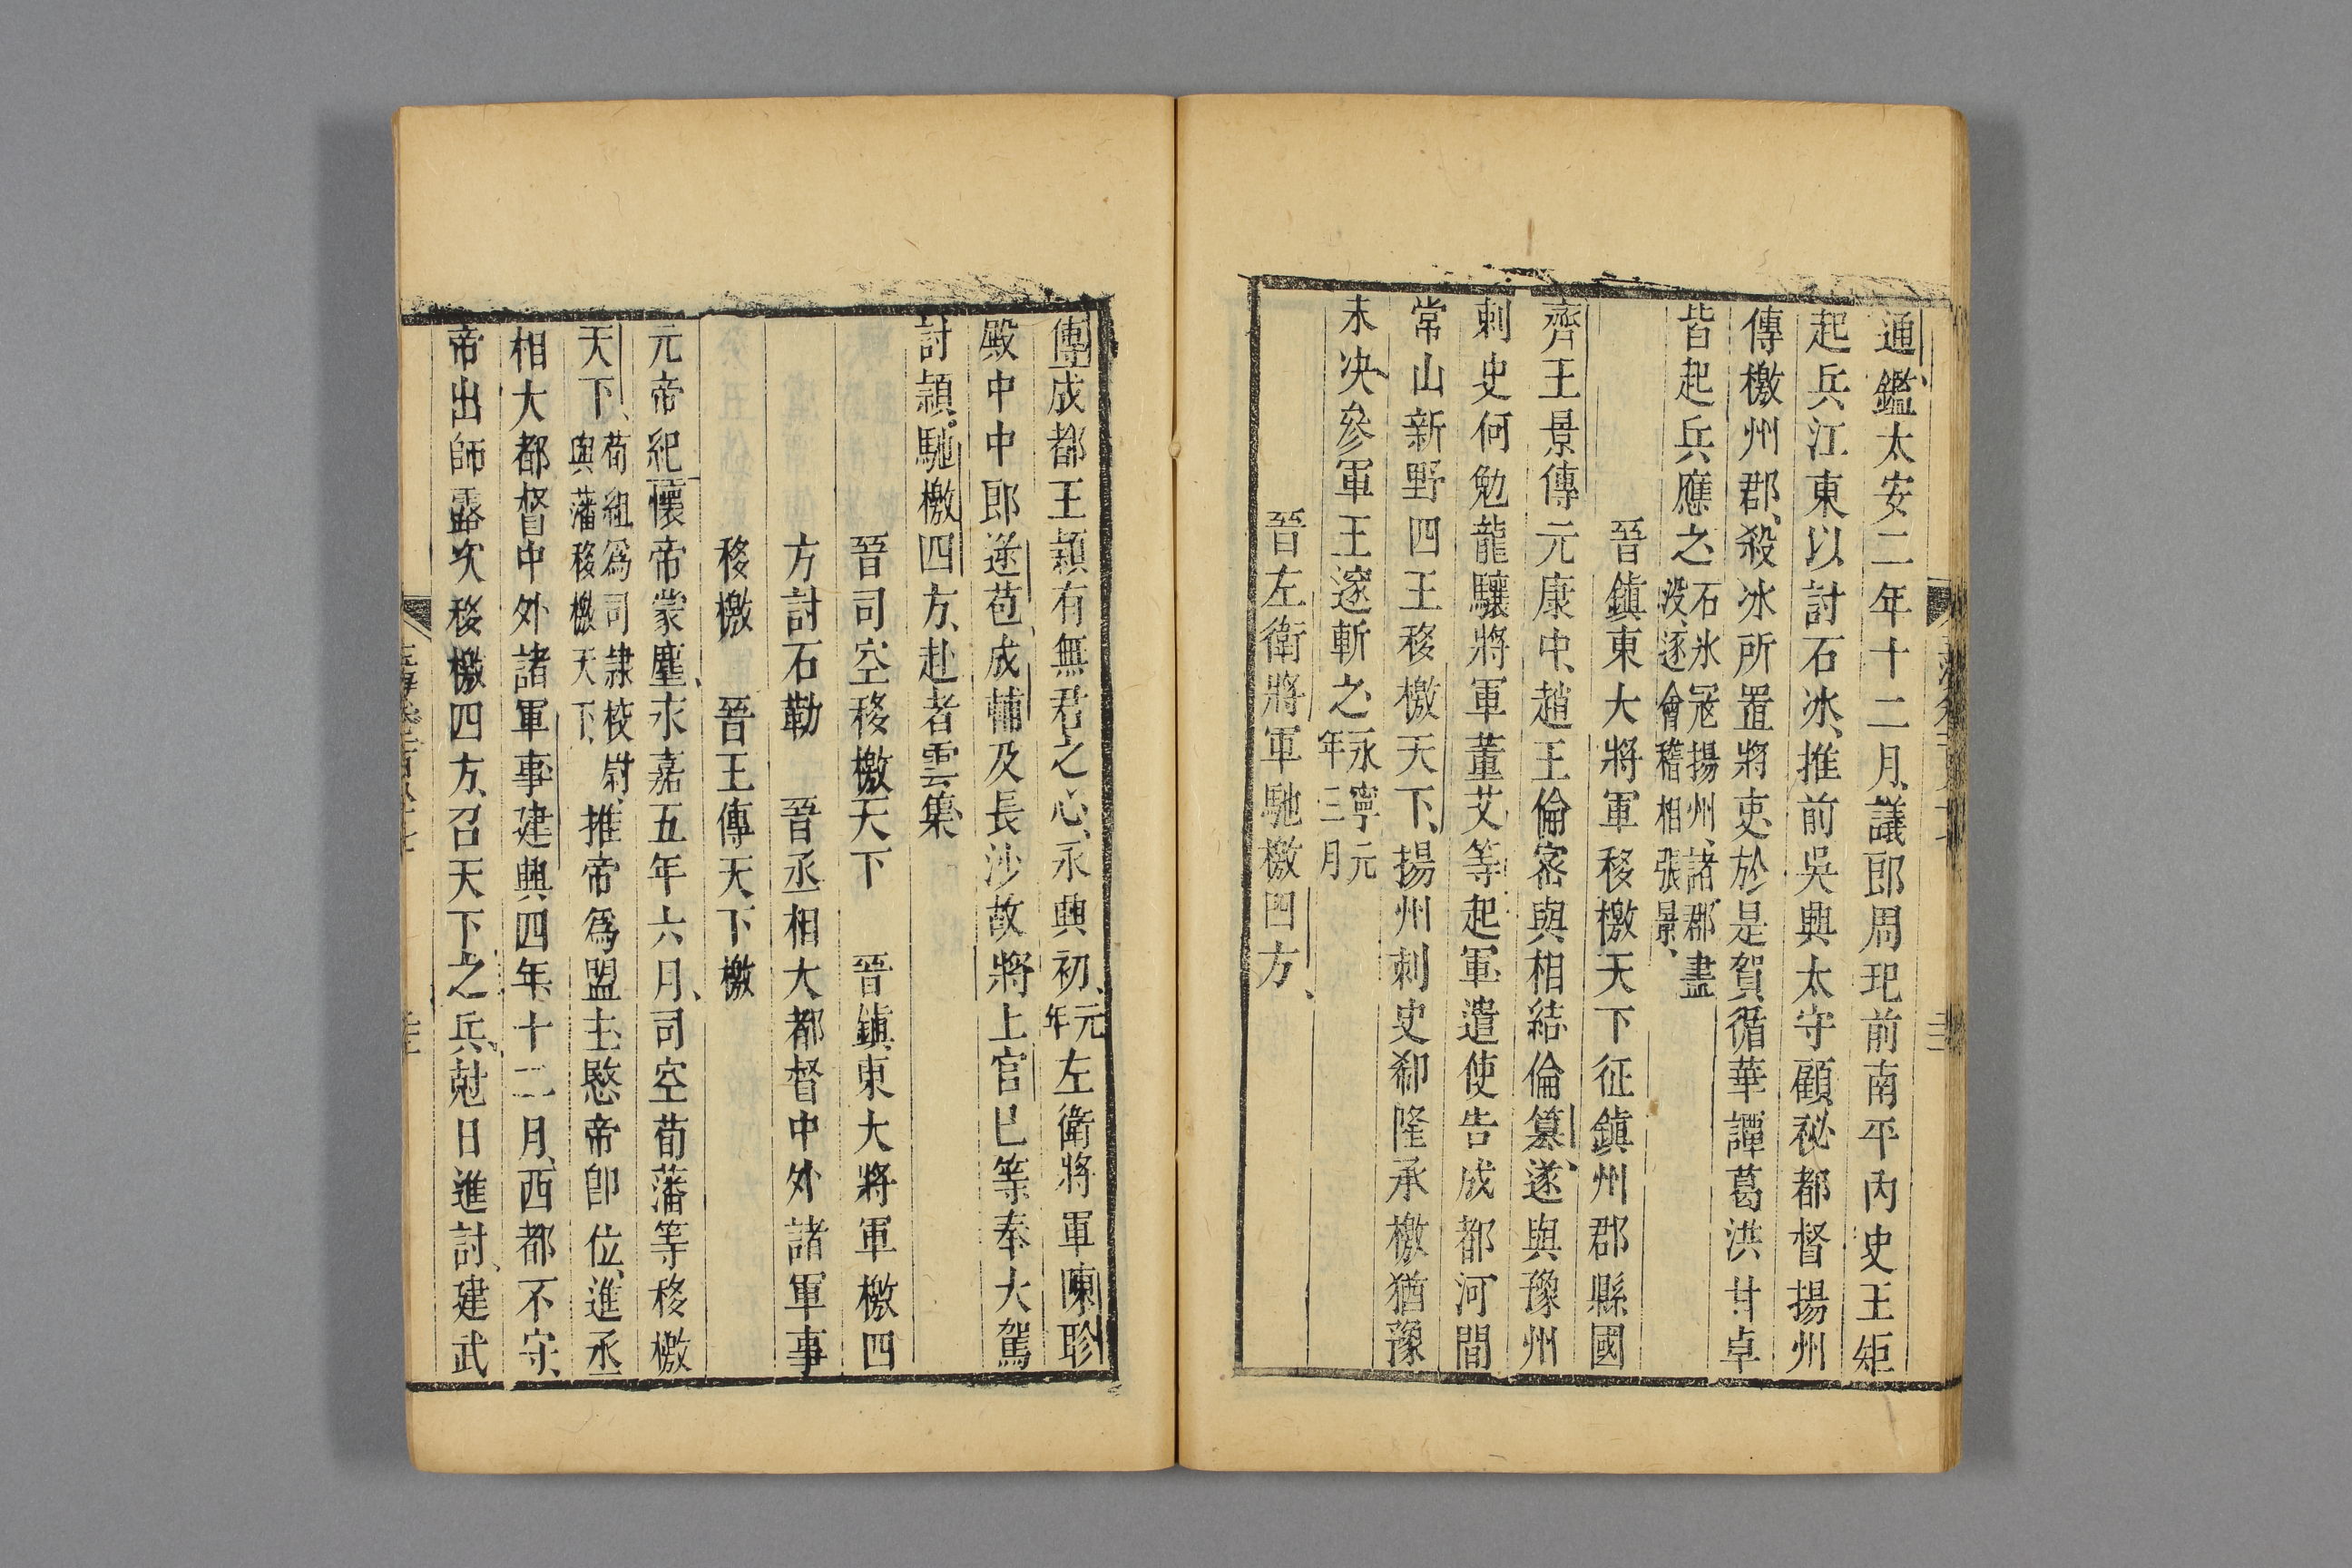 通鑑太安二年十二月議郎周玘前南平內史王矩
起兵江東以討石冰推前吳興太守顧祕都督揚州
傳檄州郡殺冰所置將吏於是賀循華譚葛洪甘卓
皆起兵應之石氷冦揚州諸郡盡没逐會稽相張景
晉鎮東大將軍移檄天下征鎮州郡縣國
齊王冏傳元康中趙王倫密與相結倫篡遂與豫州
刺史何勉龍驤將軍董艾等起軍遣使告成都河間
常山新野四王移檄天下揚州刺史郗隆承檄猶豫
未決參軍王邃斬之永寧元年三月
晉左衛將軍馳檄四方
傳成都王穎有無君之心永興初元年左衛將軍陳眕
殿中中郎逯苞成輔及長沙故將上官巳等奉大駕
討穎馳檄四方赴者雲集
晉司空移檄天下　晉鎮東大將軍檄四
方討石勒　晉丞相大都督中外諸軍事
移檄　晉王傳天下檄
元帝紀懷帝蒙塵永嘉五年六月司空荀藩等移檄
天下荀組爲司隷校尉與藩移檄天下推帝爲盟主愍帝卽位進丞
相大都督中外諸軍事建興四年十二月西都不守
帝出師露次移檄四方召天下之兵尅日進討建武